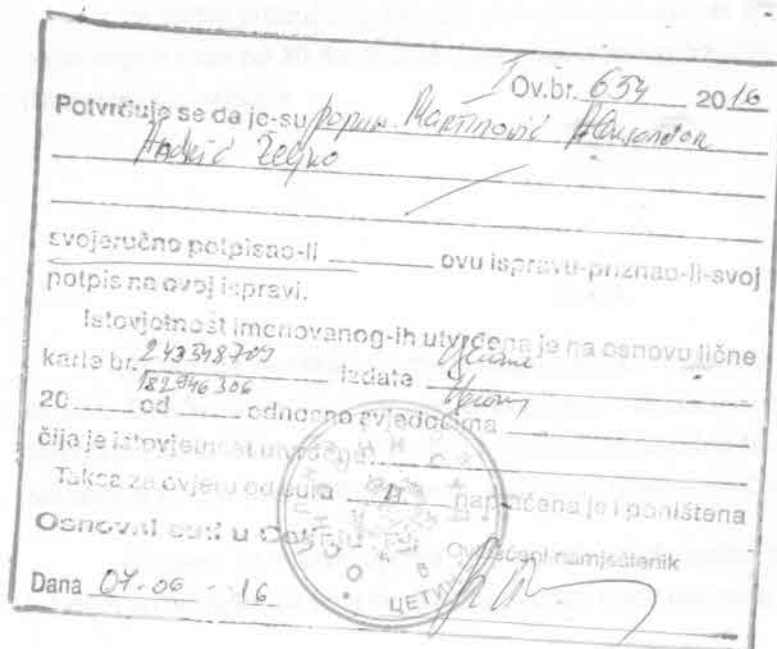 Ov.br. 654 2016
Potvrđuje se da je-su Мартиновић
Željko
svojeručno potpisao-li ovu ispravu-priznao-li-svoj
potpis na ovoj ispravi.
Istovjetnost imenovanog-ih utvrđena je na osnovu lične
karte br. 243348709 izdate
182946306
20 od odnosno svjedocima
čija je istovjetnost utvrđena
Taksa za ovjeru od eura naplaćena je i poništena
Osnovni sud u Cetinju
Ovlašćeni namještenik
Dana 07.06 - 16
ЦЕТИЊЕ